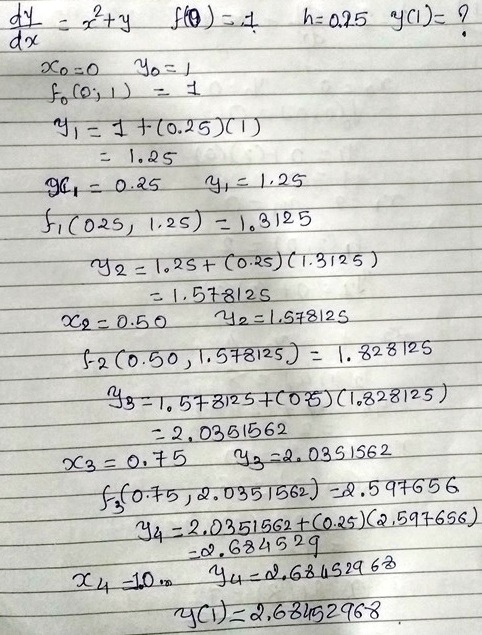 dy/dx = x²+y f(0) = 1 h=0.25 y(1)= ?
x₀=0 y₀=1
f₀(0, 1) = 1
y₁ = 1 + (0.25)(1)
= 1.25
x₁ = 0.25 y₁ = 1.25
f₁(025, 1.25) = 1.3125
y₂ = 1.25 + (0.25)(1.3125)
= 1.578125
x₂ = 0.50 y₂ = 1.578125
f₂(0.50, 1.578125) = 1.828125
y₃ = 1.578125+(025)(1.828125)
= 2.0351562
x₃ = 0.75 y₃ = 2.0351562
f₃(0.75, 2.0351562) = 2.597656
y₄ = 2.0351562+(0.25)(2.597656)
= 2.684529
x₄ = 1.0 y₄ = 2.68452968
y(1) = 2.68452968